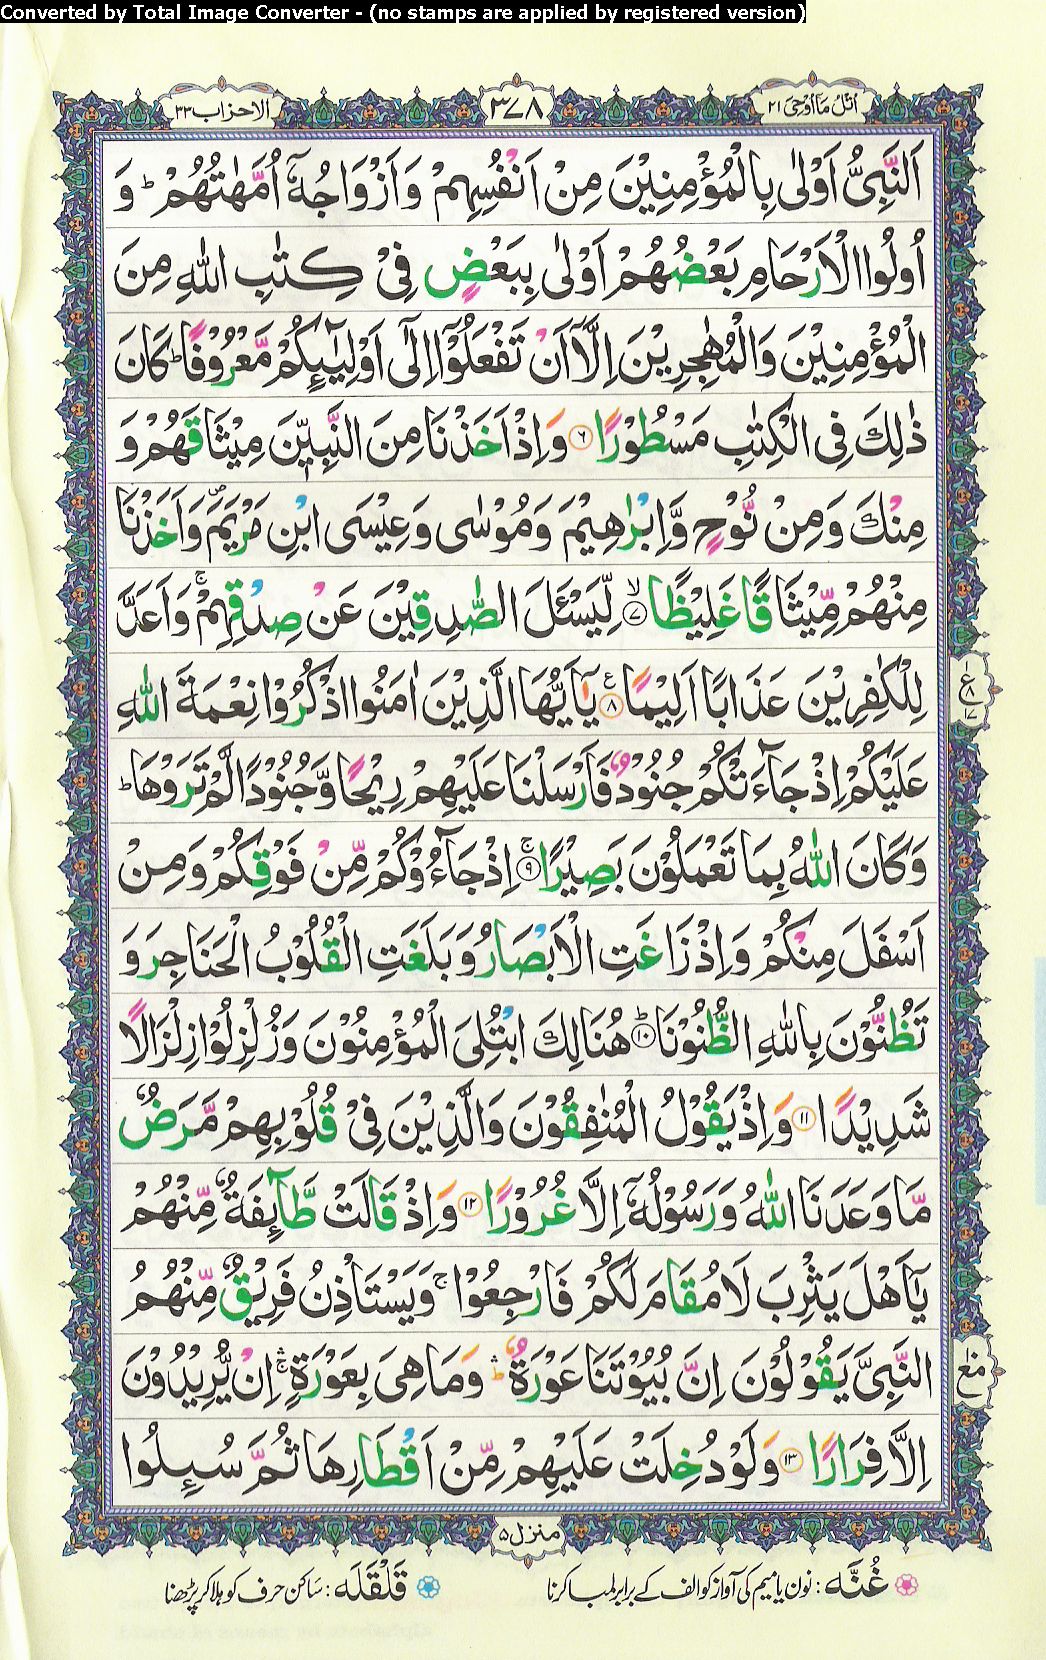 Converted by Total Image Converter - (no stamps are applied by registered version)
اتل ما اوحی ۲۱
۳۷۸
الاحزاب ۳۳
اَلنَّبِیُّ اَوْلٰی بِالْمُؤْمِنِیْنَ مِنْ اَنْفُسِهِمْ وَاَزْوَاجُهٗۤ اُمَّهٰتُهُمْ ؕ وَ
اُولُوا الْاَرْحَامِ بَعْضُهُمْ اَوْلٰی بِبَعْضٍ فِیْ كِتٰبِ اللّٰهِ مِنَ
الْمُؤْمِنِیْنَ وَالْمُهٰجِرِیْنَ اِلَّاۤ اَنْ تَفْعَلُوْۤا اِلٰۤی اَوْلِیٰٓىِٕكُمْ مَّعْرُوْفًا ؕ كَانَ
ذٰلِكَ فِی الْكِتٰبِ مَسْطُوْرًا ۶ وَاِذْ اَخَذْنَا مِنَ النَّبِیّٖنَ مِیْثَاقَهُمْ وَ
مِنْكَ وَمِنْ نُّوْحٍ وَّاِبْرٰهِیْمَ وَمُوْسٰی وَعِیْسَی ابْنِ مَرْیَمَ ۪ وَاَخَذْنَا
مِنْهُمْ مِّیْثَاقًا غَلِیْظًا ۷ لِّیَسْـَٔلَ الصّٰدِقِیْنَ عَنْ صِدْقِهِمْ ۚ وَاَعَدَّ
لِلْكٰفِرِیْنَ عَذَابًا اَلِیْمًا ۸ یٰۤاَیُّهَا الَّذِیْنَ اٰمَنُوا اذْكُرُوْا نِعْمَةَ اللّٰهِ
ع ۸ ۱۷
عَلَیْكُمْ اِذْ جَآءَتْكُمْ جُنُوْدٌ فَاَرْسَلْنَا عَلَیْهِمْ رِیْحًا وَّجُنُوْدًا لَّمْ تَرَوْهَا ؕ
وَكَانَ اللّٰهُ بِمَا تَعْمَلُوْنَ بَصِیْرًا ۹ اِذْ جَآءُوْكُمْ مِّنْ فَوْقِكُمْ وَمِنْ
اَسْفَلَ مِنْكُمْ وَاِذْ زَاغَتِ الْاَبْصَارُ وَبَلَغَتِ الْقُلُوْبُ الْحَنَاجِرَ وَ
تَظُنُّوْنَ بِاللّٰهِ الظُّنُوْنَا ۱۰ هُنَالِكَ ابْتُلِیَ الْمُؤْمِنُوْنَ وَزُلْزِلُوْا زِلْزَالًا
شَدِیْدًا ۱۱ وَاِذْ یَقُوْلُ الْمُنٰفِقُوْنَ وَالَّذِیْنَ فِیْ قُلُوْبِهِمْ مَّرَضٌ
مَّا وَعَدَنَا اللّٰهُ وَرَسُوْلُهٗۤ اِلَّا غُرُوْرًا ۱۲ وَاِذْ قَالَتْ طَّآىِٕفَةٌ مِّنْهُمْ
یٰۤاَهْلَ یَثْرِبَ لَا مُقَامَ لَكُمْ فَارْجِعُوْا ۚ وَیَسْتَاْذِنُ فَرِیْقٌ مِّنْهُمُ
النَّبِیَّ یَقُوْلُوْنَ اِنَّ بُیُوْتَنَا عَوْرَةٌ ۛؕ وَمَا هِیَ بِعَوْرَةٍ ۛۚ اِنْ یُّرِیْدُوْنَ
اِلَّا فِرَارًا ۱۳ وَلَوْ دُخِلَتْ عَلَیْهِمْ مِّنْ اَقْطَارِهَا ثُمَّ سُىِٕلُوا
منزل ۵
غُنَّه : نون یا میم کی آواز کو الف کے برابر لمبا کرنا
قَلْقَلَه : ساکن حرف کو ہلا کر پڑھنا